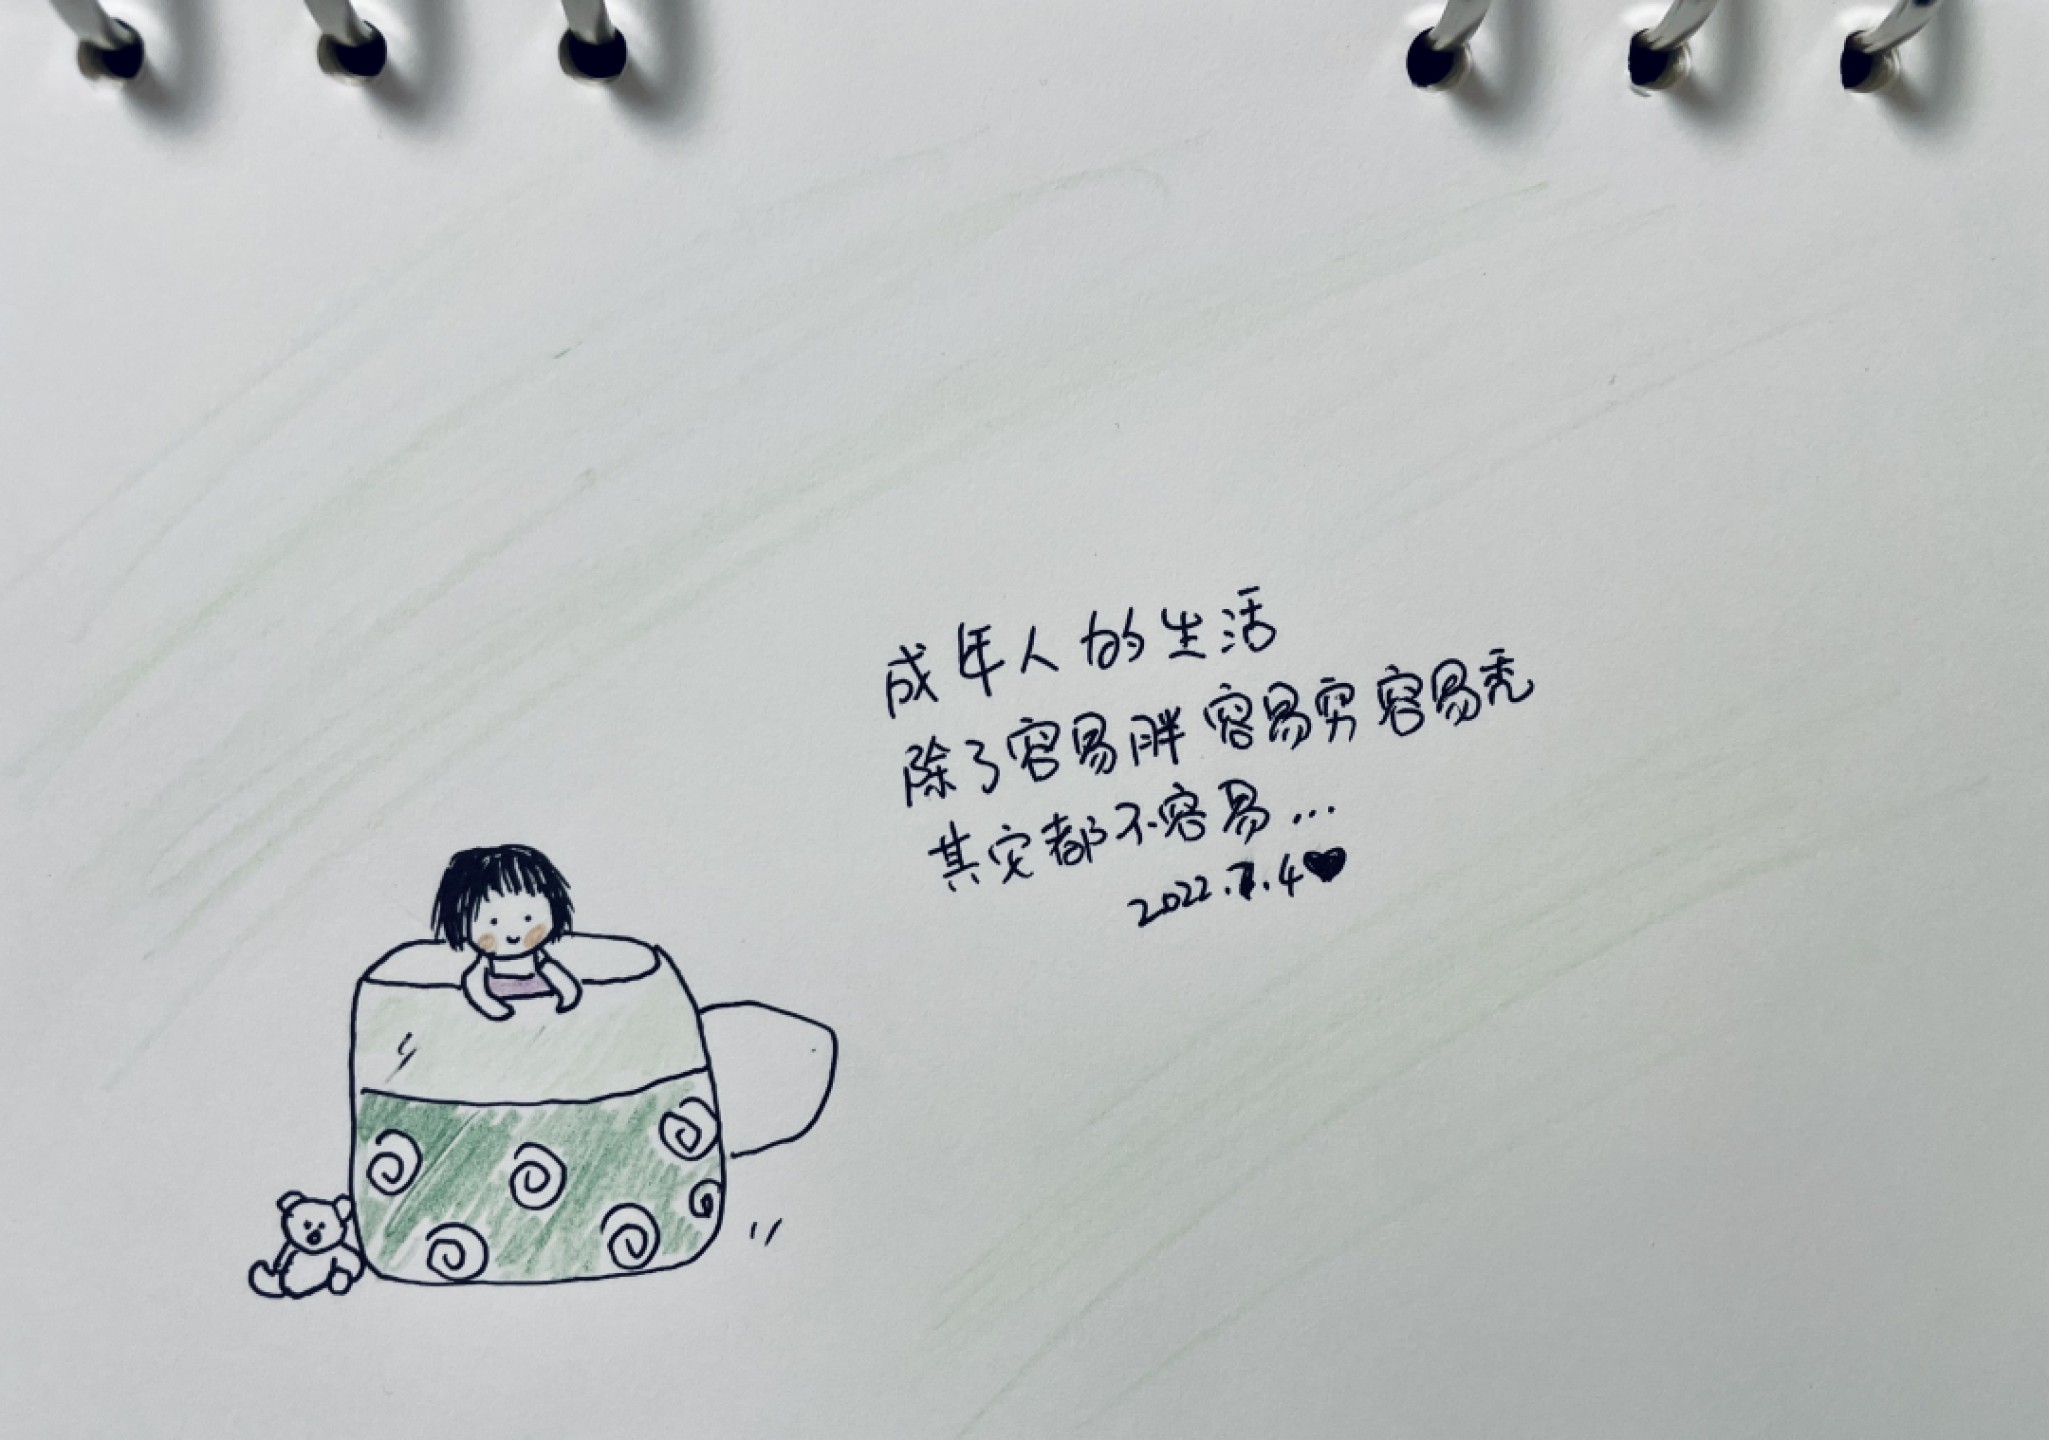 成年人的生活
除了容易胖 容易穷 容易秃
其它都不容易...
2022.7.4♥